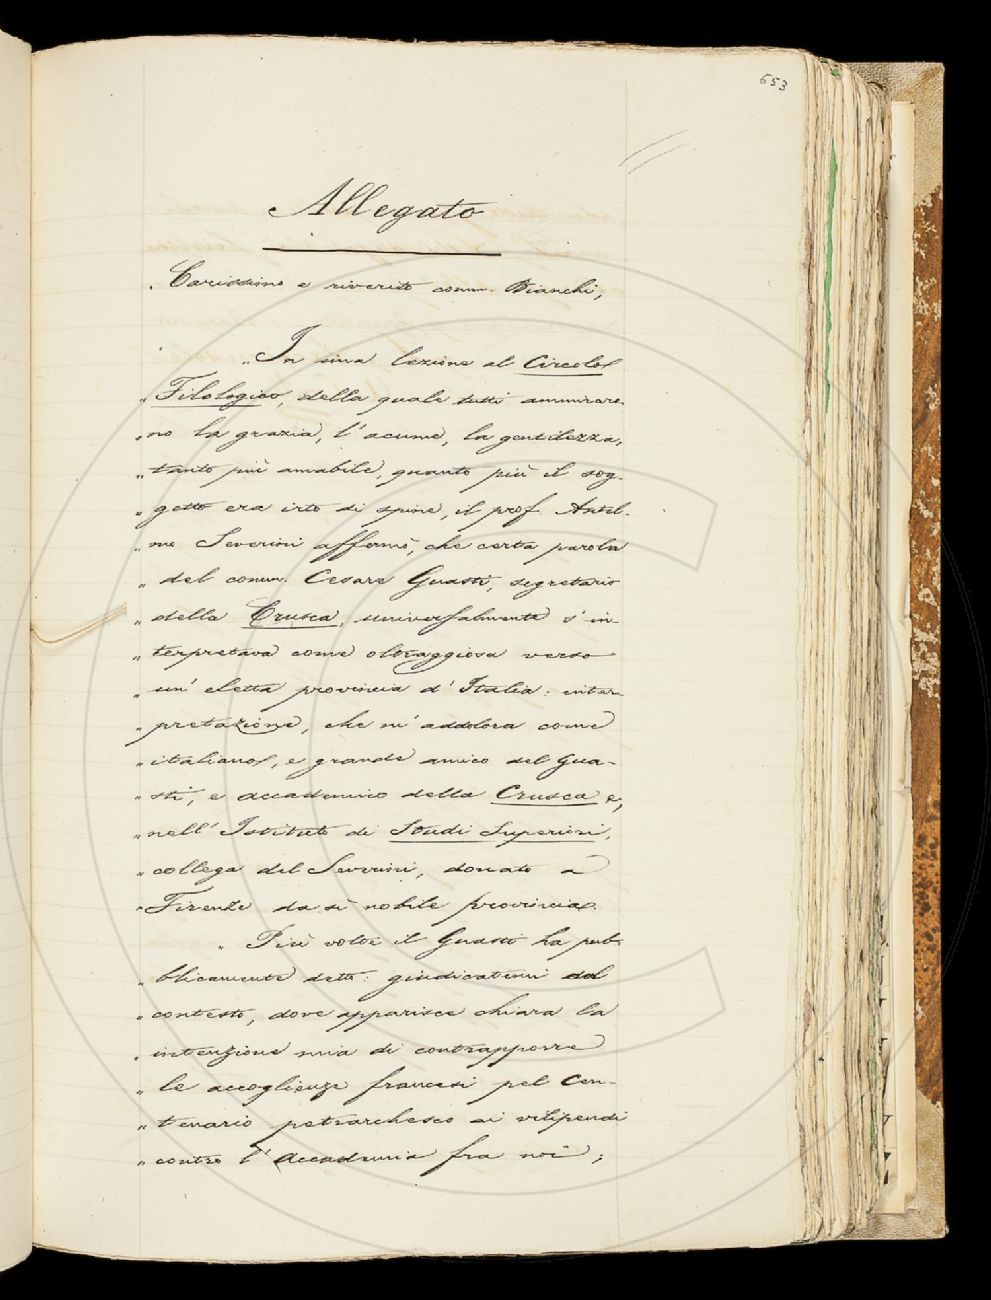 653
Allegato
Carissimo e riverito comm. Bianchi,
„ In una lezione al Circolo
„ Filologico, della quale tutti ammiraro-
„ no la grazia, l'acume, la gentilezza,
„ tanto più amabile, quanto più il sog-
„ getto era irto di spine, il prof. Antel-
„ mo Severini affermò, che certa parola
„ del comm. Cesare Guasti, segretario
„ della Crusca, universalmente s'in-
„ terpretava come oltraggiosa verso
„ un'eletta provincia d'Italia: inter-
„ pretazione, che m'addolora come
„ italiano, e grande amico del Gua-
„ sti, e accademico della Crusca e,
„ nell'Istituto di Studi Superiori,
„ collega del Severini, donato a
„ Firenze da sì nobile provincia.
„ Più volte il Guasti ha pub-
„ blicamente detto: giudicatemi dal
„ contesto, dove apparisce chiara la
„ intenzione mia di contrapporre
„ le accoglienze francesi pel Cen-
„ tenario petrarchesco ai vilipendi
„ contro l'Accademia fra noi;